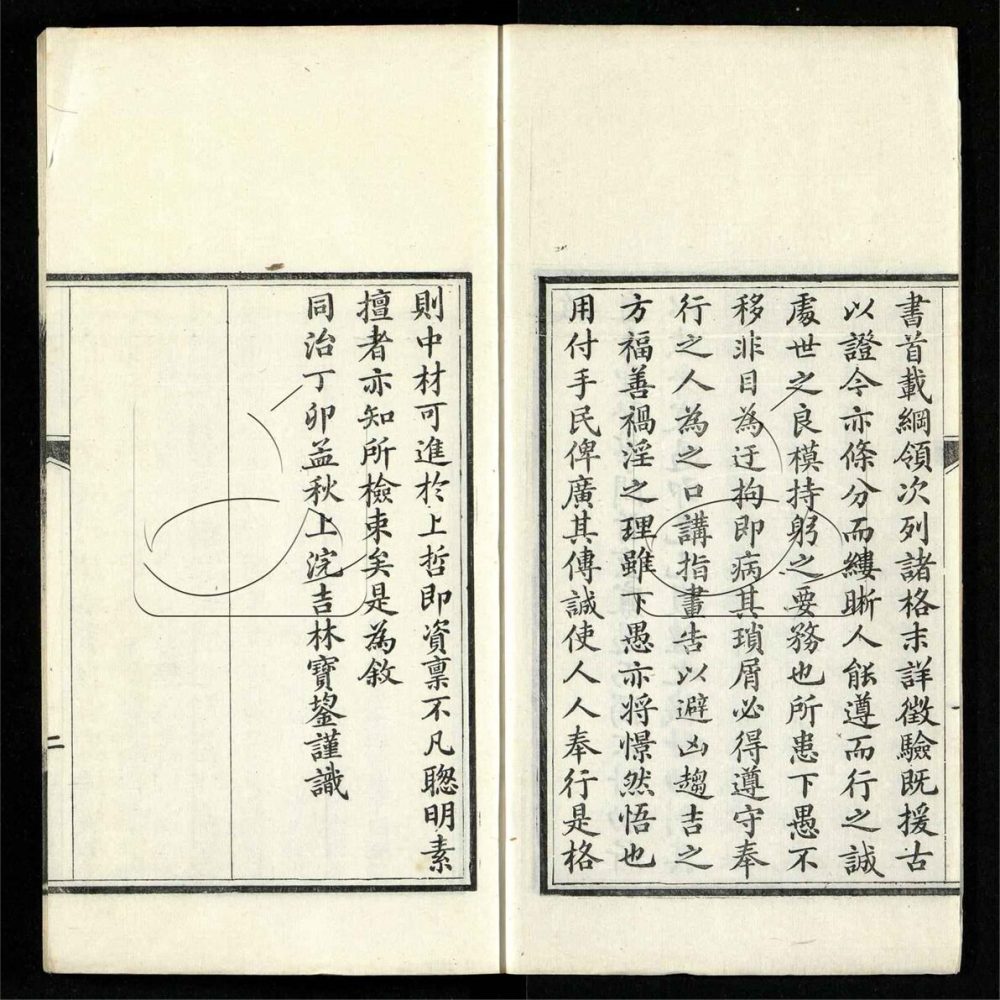 書首載綱領次列諸格末詳徵驗既援古
以證今亦條分而縷晰人能遵而行之誠
處世之良模持躬之要務也所患下愚不
移非目為迂拘即病其瑣屑必得遵守奉
行之人為之口講指畫告以避凶趨吉之
方福善禍淫之理雖下愚亦將憬然悟也
用付手民俾廣其傳誠使人人奉行是格
則中材可進於上哲即資稟不凡聰明素
擅者亦知所檢束矣是為敘
同治丁卯孟秋上浣吉林寶鋆謹識
二